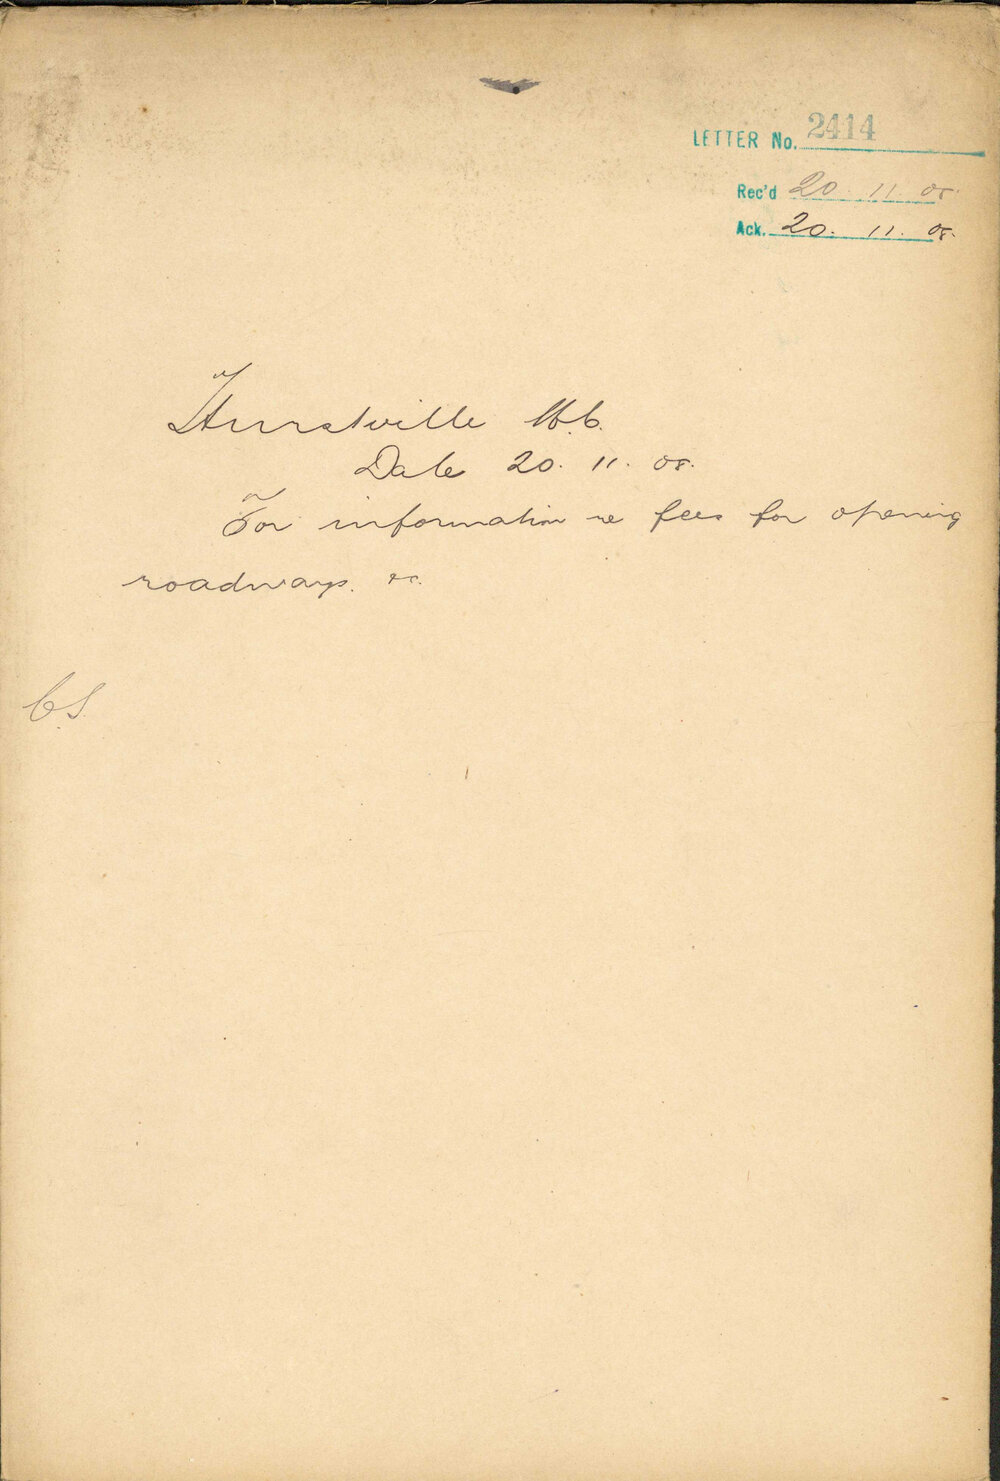 LETTER No. 2414
Rec'd 20. 11. 08.
Ack. 20. 11. 08.
Hurstville M.C.
Date 20. 11. 08.
For information re fees for opening
roadways. &c.
C.S.